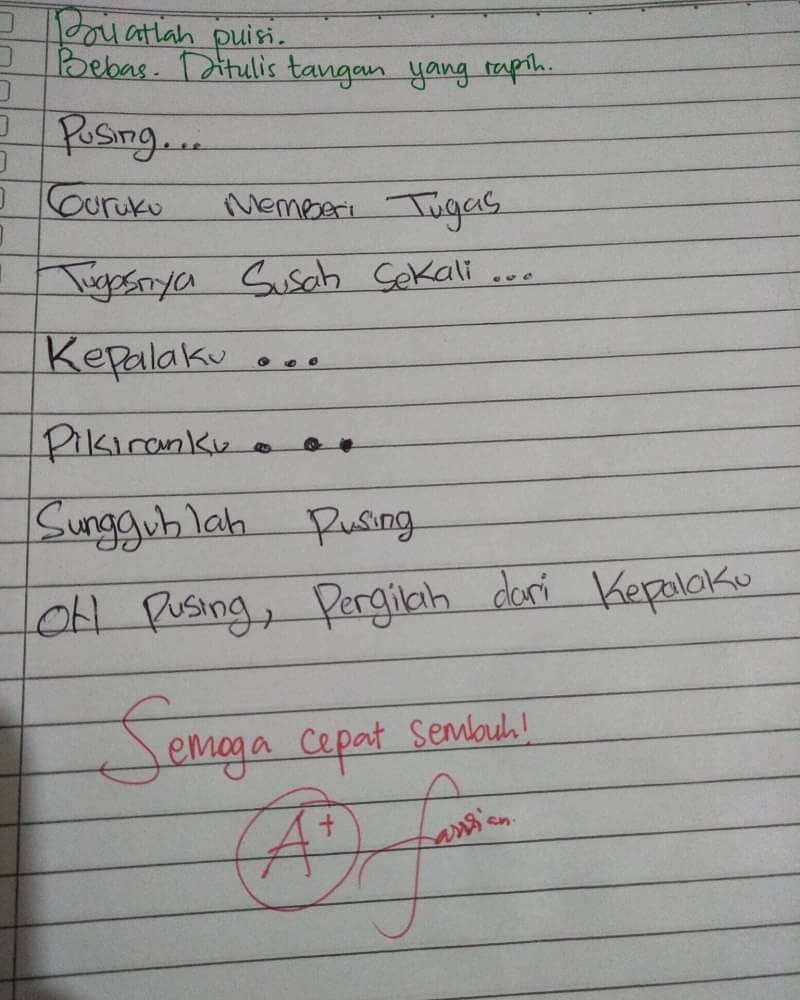 Buatlah puisi.
Bebas. Ditulis tangan yang rapih.
Pusing...
Guruku Memberi Tugas
Tugasnya Susah Sekali...
Kepalaku...
Pikiranku...
Sungguhlah Pusing
OH Pusing, Pergilah dari Kepalaku
Semoga cepat sembuh!
A+